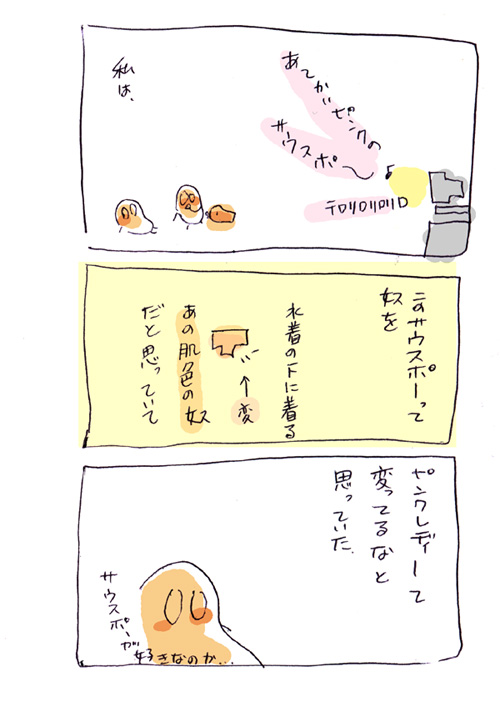 あてかいピンクの
サウスポ〜
テロリロリロリロ
私は、
このサウスポーって
奴を
水着の下に着る
↑変
あの肌色の奴
だと思っていて
ピンクレディーて
変ってるなと
思っていた。
サウスポーが
好きなのか…